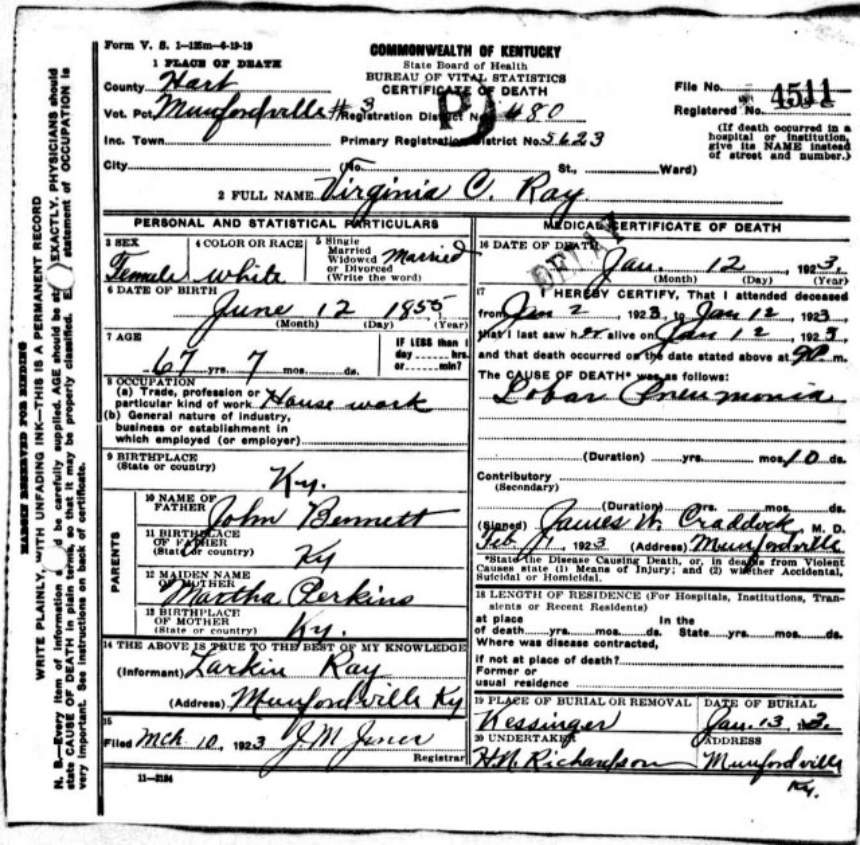 Form V. S. 1—125m—6-19-19
COMMONWEALTH OF KENTUCKY
State Board of Health
BUREAU OF VITAL STATISTICS
CERTIFICATE OF DEATH
1 PLACE OF DEATH
County Hart
Vot. Pct. Munfordville #3 Registration District No. 480
Inc. Town Primary Registration District No. 5623
City (No. St., Ward)
File No.
Registered No. 4511
(If death occurred in a
hospital or institution,
give its NAME instead
of street and number.)
2 FULL NAME Virginia C. Ray
PERSONAL AND STATISTICAL PARTICULARS
3 SEX Female
4 COLOR OR RACE white
5 Single
Married
Widowed
or Divorced
(Write the word) Married
6 DATE OF BIRTH
June 12 1855
(Month) (Day) (Year)
7 AGE
67 yrs. 7 mos. ds.
IF LESS than 1
day hrs.
or min?
8 OCCUPATION
(a) Trade, profession or
particular kind of work House work
(b) General nature of industry,
business or establishment in
which employed (or employer)
9 BIRTHPLACE
(State or country)
Ky.
PARENTS
10 NAME OF
FATHER John Bennett
11 BIRTHPLACE
OF FATHER
(State or country) Ky
12 MAIDEN NAME
OF MOTHER
Martha Perkins
13 BIRTHPLACE
OF MOTHER
(State or country) Ky.
14 THE ABOVE IS TRUE TO THE BEST OF MY KNOWLEDGE
(Informant) Larkin Ray
(Address) Munfordville Ky
15
Filed Mch 10, 1923 J. M. Jones
Registrar
11—3184
MEDICAL CERTIFICATE OF DEATH
DELAY
16 DATE OF DEATH
Jan. 12, 1923.
(Month) (Day) (Year)
17 I HEREBY CERTIFY, That I attended deceased
from Jan 2, 1923, to Jan 12, 1923
that I last saw her alive on Jan 12, 1923
and that death occurred on the date stated above at 9P. m.
The CAUSE OF DEATH* was as follows:
Lobar Pneumonia
(Duration) yrs. mos. 10 ds.
Contributory
(Secondary)
(Duration) yrs. mos. ds.
(Signed) James W. Craddock, M. D.
Feb. 1, 1923 (Address) Munfordville
*State the Disease Causing Death, or, in deaths from Violent
Causes state (1) Means of Injury; and (2) whether Accidental,
Suicidal or Homicidal.
18 LENGTH OF RESIDENCE (For Hospitals, Institutions, Tran-
sients or Recent Residents)
at place In the
of death yrs. mos. ds. State yrs. mos. ds.
Where was disease contracted,
if not at place of death?
Former or
usual residence
19 PLACE OF BURIAL OR REMOVAL
Kessinger
DATE OF BURIAL
Jan. 13, 3.
20 UNDERTAKER
H. N. Richardson
ADDRESS
Munfordville
Ky.
MARGIN RESERVED FOR BINDING
WRITE PLAINLY, WITH UNFADING INK—THIS IS A PERMANENT RECORD
N. B.—Every item of information should be carefully supplied. AGE should be stated EXACTLY. PHYSICIANS should
state CAUSE OF DEATH in plain terms, so that it may be properly classified. statement of OCCUPATION is
very important. See instructions on back of certificate.